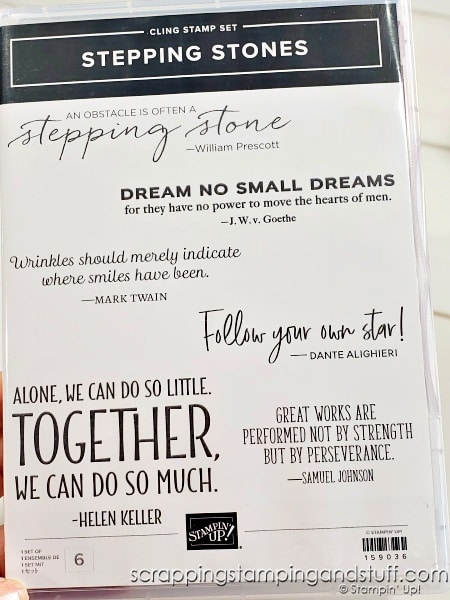 CLING STAMP SET
STEPPING STONES
AN OBSTACLE IS OFTEN A
stepping stone
—William Prescott
DREAM NO SMALL DREAMS
for they have no power to move the hearts of men.
—J. W. v. Goethe
Wrinkles should merely indicate
where smiles have been.
—MARK TWAIN
Follow your own star!
— DANTE ALIGHIERI
ALONE, WE CAN DO SO LITTLE.
TOGETHER,
WE CAN DO SO MUCH.
-HELEN KELLER
GREAT WORKS ARE
PERFORMED NOT BY STRENGTH
BUT BY PERSEVERANCE.
—SAMUEL JOHNSON
STAMPIN' UP!
SET OF
ENSEMBLE DE
SET MIT
セット
6
© STAMPIN' UP!
159036
scrappingstampingandstuff.com
© Stampin' Up!